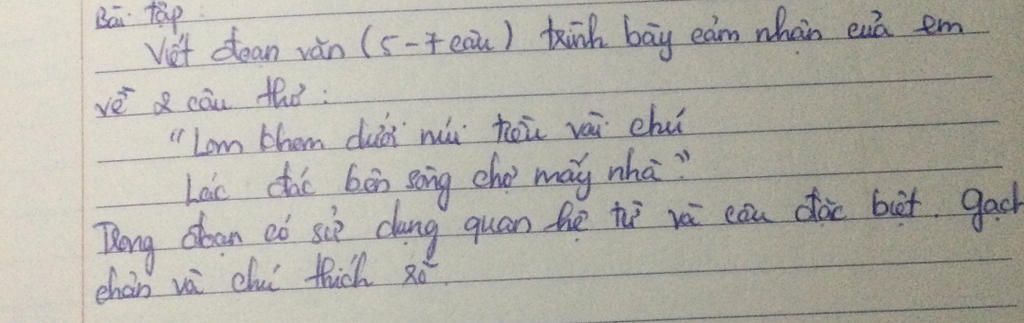 Bài tập
Viết đoạn văn (5-7 câu) trình bày cảm nhận của em
về 2 câu thơ:
"Lom khom dưới núi tiều vài chú
Lác đác bên sông chợ mấy nhà"
Trong đoạn có sử dụng quan hệ từ và câu đặc biệt. Gạch
chân và chú thích rõ.